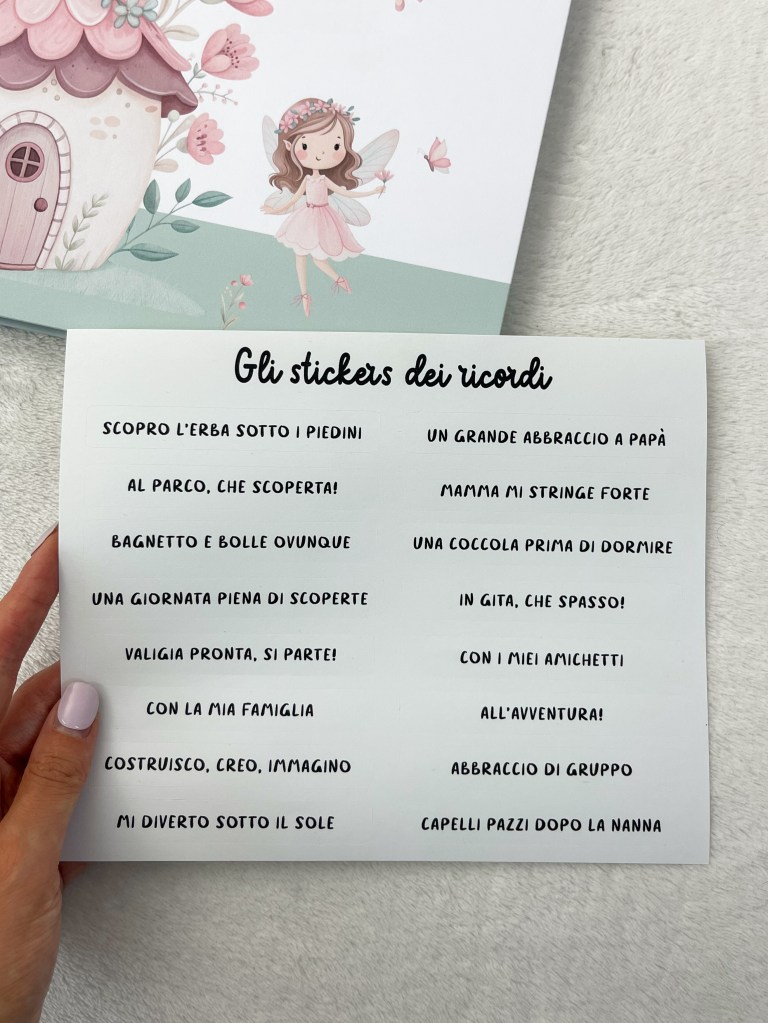 Gli stickers dei ricordi
SCOPRO L'ERBA SOTTO I PIEDINI
AL PARCO, CHE SCOPERTA!
BAGNETTO E BOLLE OVUNQUE
UNA GIORNATA PIENA DI SCOPERTE
VALIGIA PRONTA, SI PARTE!
CON LA MIA FAMIGLIA
COSTRUISCO, CREO, IMMAGINO
MI DIVERTO SOTTO IL SOLE
UN GRANDE ABBRACCIO A PAPÀ
MAMMA MI STRINGE FORTE
UNA COCCOLA PRIMA DI DORMIRE
IN GITA, CHE SPASSO!
CON I MIEI AMICHETTI
ALL'AVVENTURA!
ABBRACCIO DI GRUPPO
CAPELLI PAZZI DOPO LA NANNA